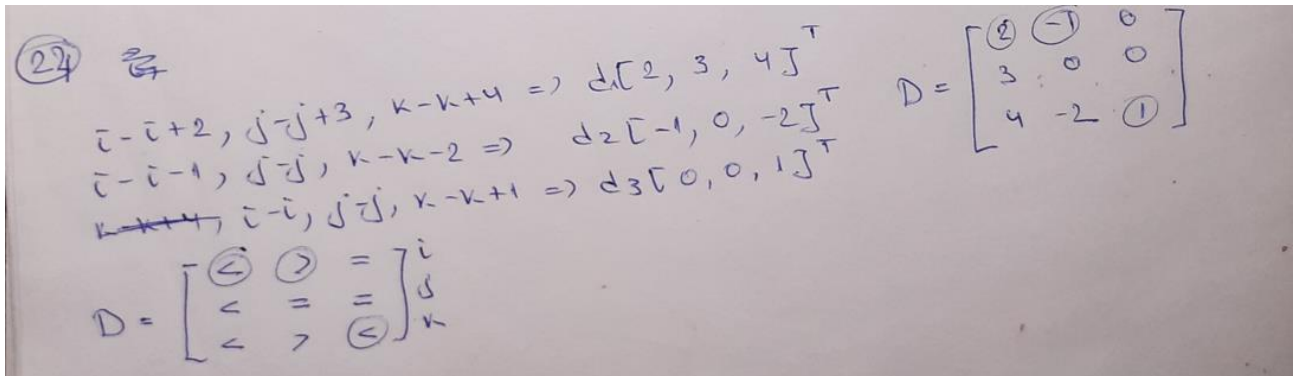 22
i-i+2, j-j+3, k-k+4 => d1[2, 3, 4]^T
i-i-1, j-j, k-k-2 => d2[-1, 0, -2]^T
k-k+4, i-i, j-j, k-k+1 => d3[0, 0, 1]^T
D = [2 -1 0
3 0 0
4 -2 1]
D = [< > = i
< = = j
< > < ] k